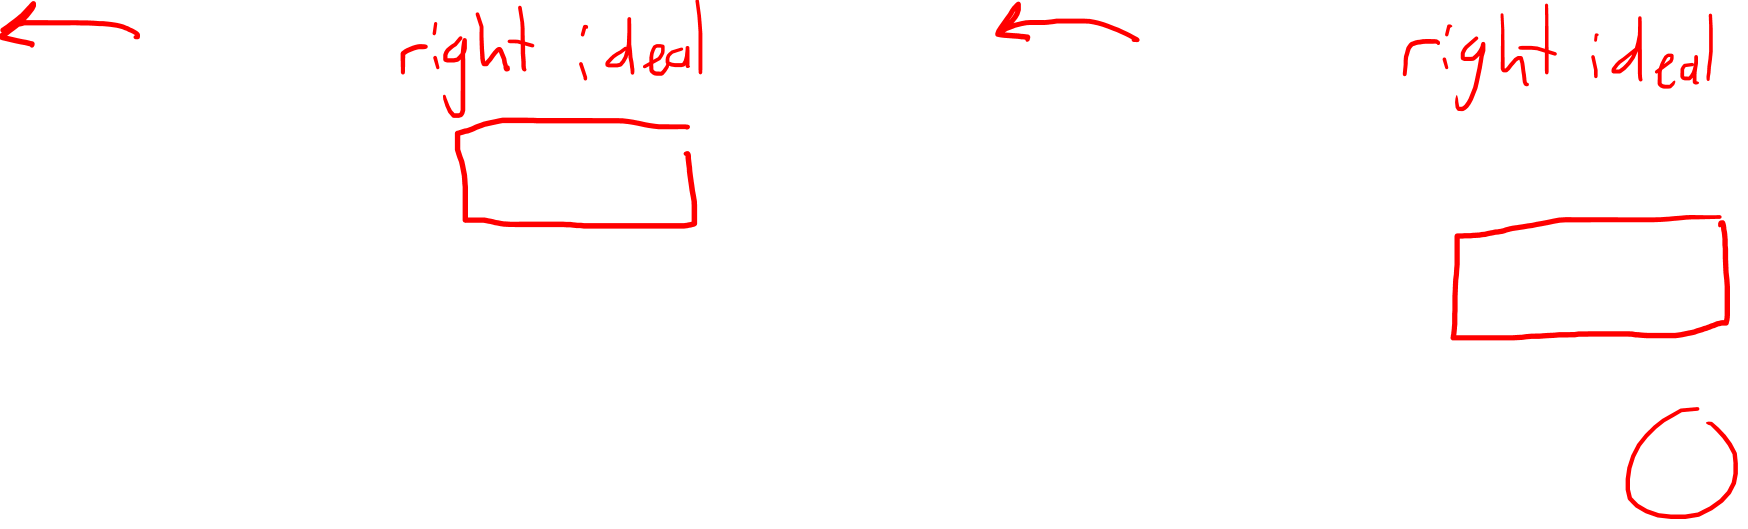 right ideal
right ideal